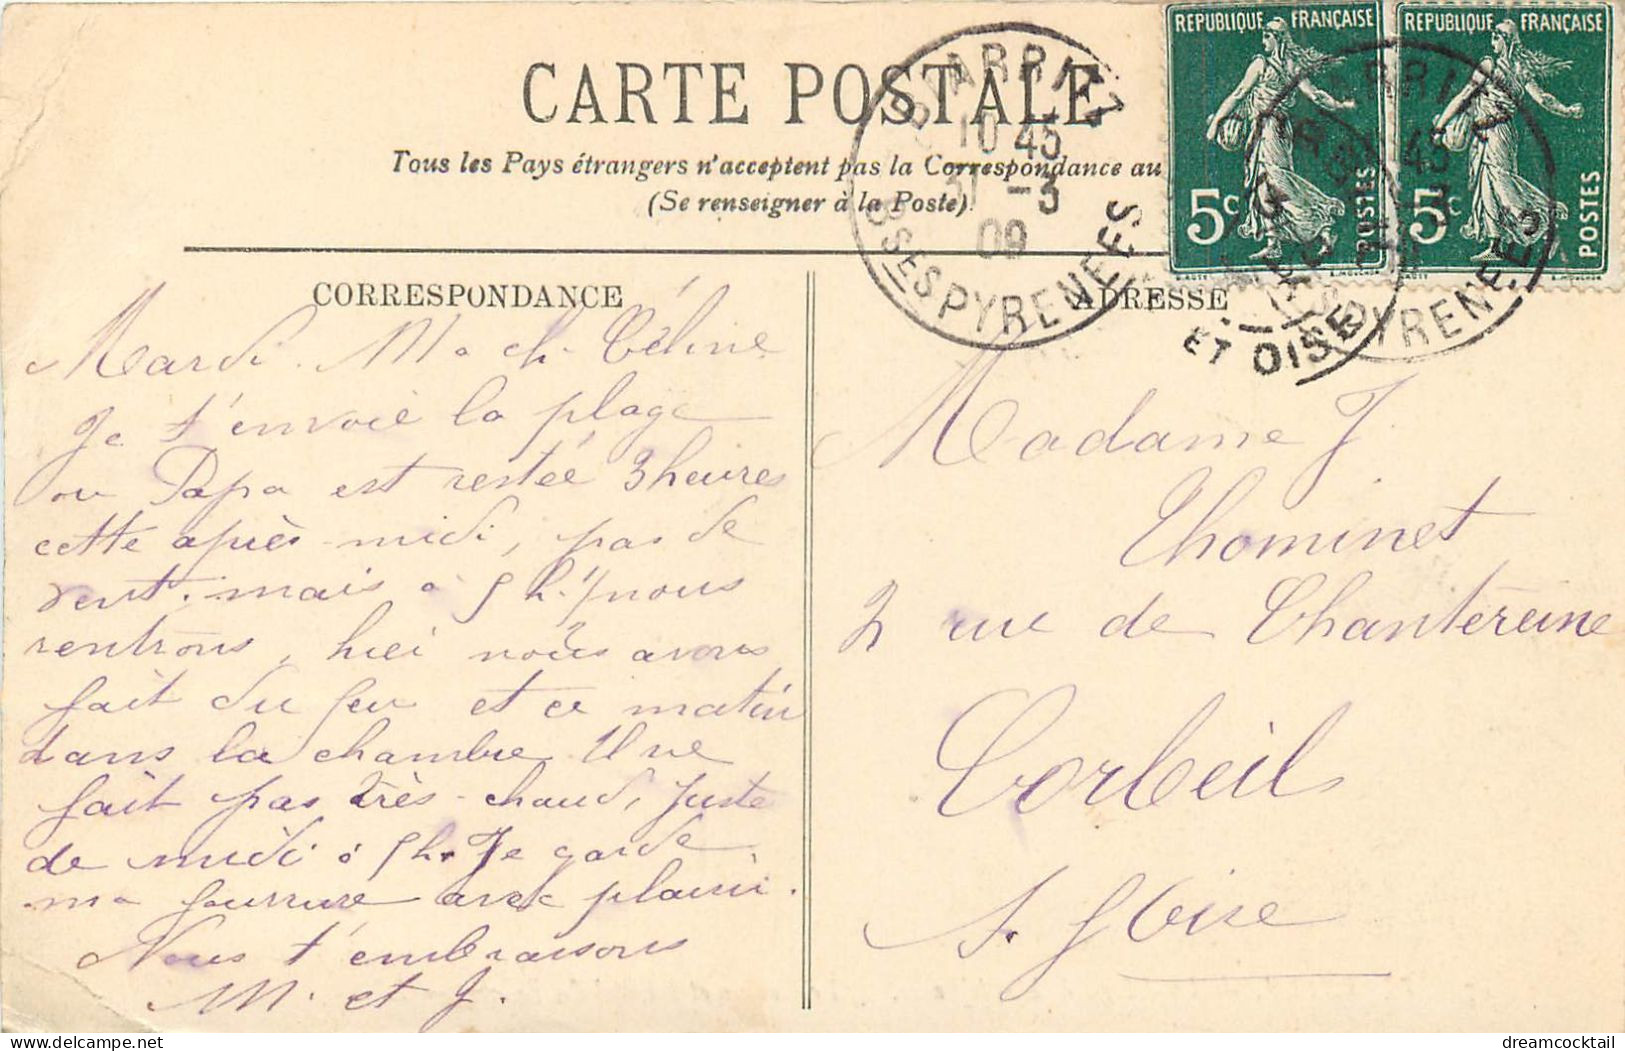 CARTE POSTALE
Tous les Pays étrangers n'acceptent pas la Correspondance au
(Se renseigner à la Poste)
RÉPUBLIQUE FRANÇAISE
5c
POSTES
RÉPUBLIQUE FRANÇAISE
5c
POSTES
BIARRITZ
10 45
31 - 3
09
BSES PYRENEES
BIARRITZ
45
PYRENEES
ET OISE
CORRESPONDANCE
Mardi. Ma ch. Céline
Je t'envoie la plage
ou Papa est restée 3 heures
cette après-midi, pas de
vent. mais à 5 h. nous
rentrons, hier nous avons
fait du feu et ce matin
dans la chambre Il ne
fait pas très-chaud, juste
de midi à 5h. Je garde
ma fourrure avec plaisir.
Nous t'embrassons
M. et J.
ADRESSE
Madame J
Thominet
2 rue de Chantereine
Corbeil
S. & Oise
dreamcocktail